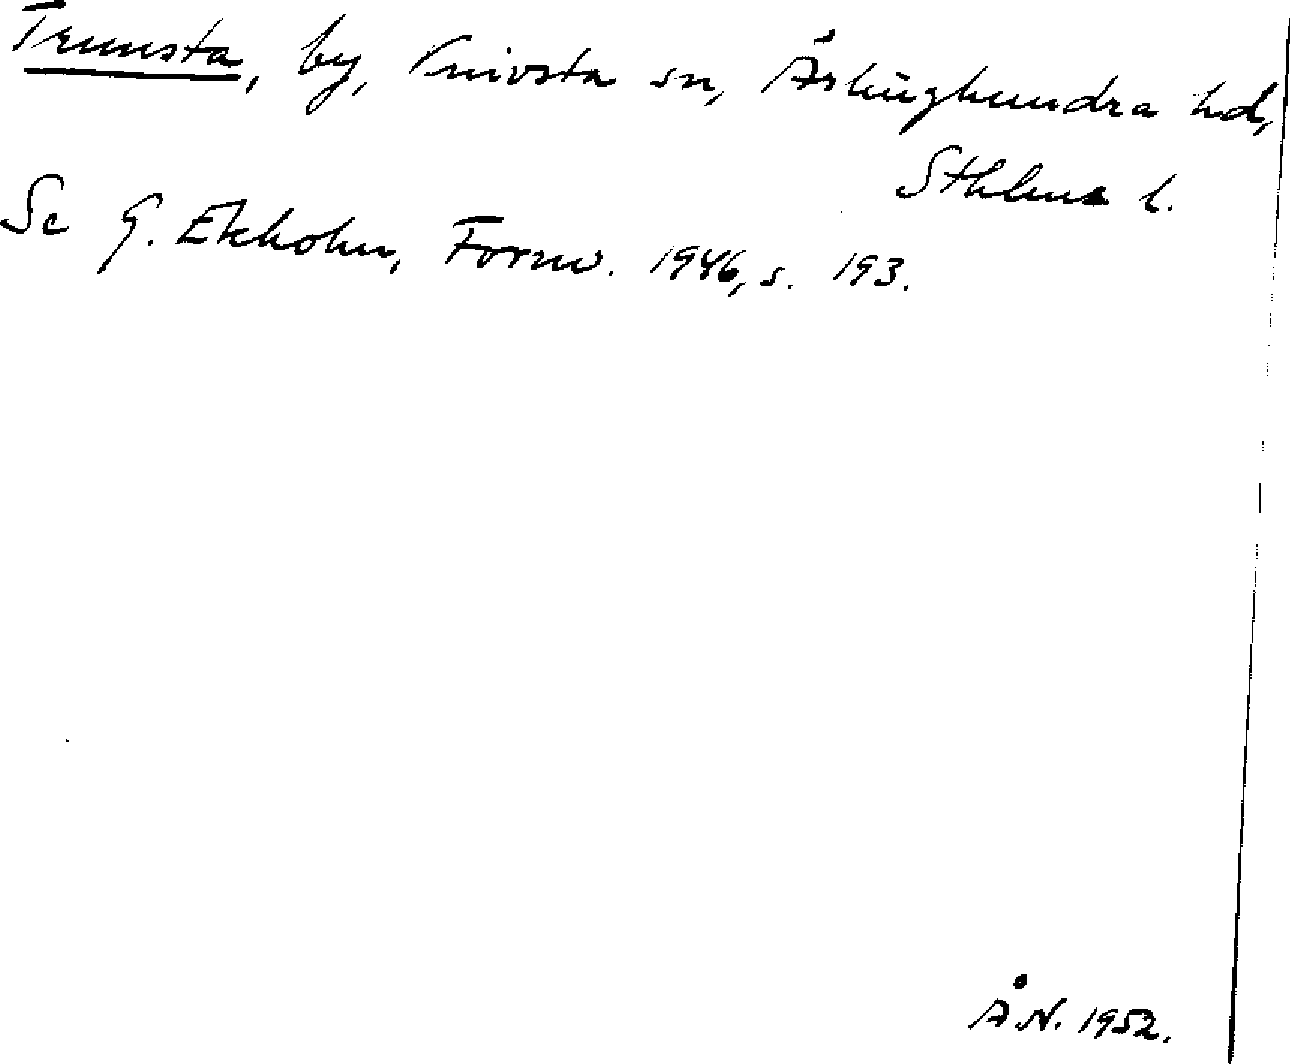 Trunsta, by, Knivsta sn, Ärlinghundra hd,
Sthlms l.
Se G. Ekholm, Fornv. 1946, s. 193.
Å.N. 1952.